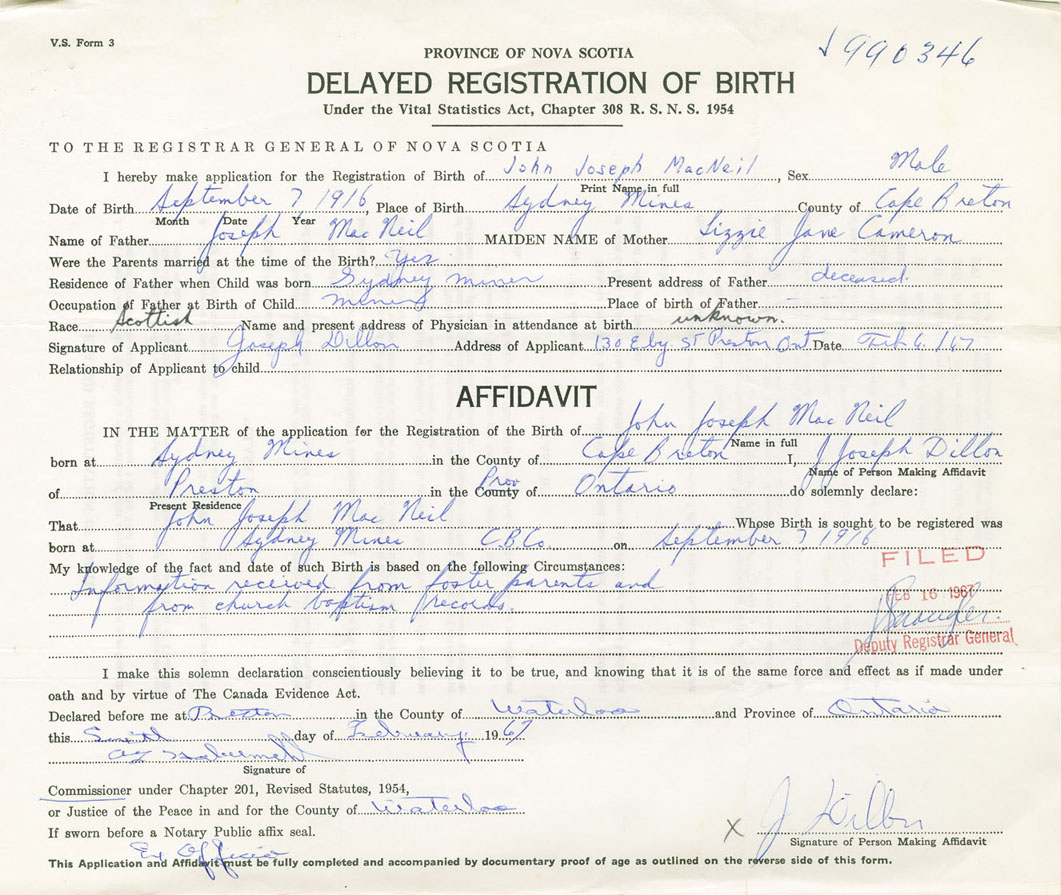 V.S. Form 3
990346
PROVINCE OF NOVA SCOTIA
DELAYED REGISTRATION OF BIRTH
Under the Vital Statistics Act, Chapter 308 R. S. N. S. 1954
TO THE REGISTRAR GENERAL OF NOVA SCOTIA
I hereby make application for the Registration of Birth of John Joseph MacNeil, Sex Male
Print Name in full
Date of Birth September 7 1916, Place of Birth Sydney Mines County of Cape Breton
Month Date Year
Name of Father Joseph Mac Neil MAIDEN NAME of Mother Lizzie Jane Cameron
Were the Parents married at the time of the Birth? Yes
Residence of Father when Child was born Sydney mines Present address of Father deceased
Occupation of Father at Birth of Child Place of birth of Father
Race Scottish Name and present address of Physician in attendance at birth unknown.
Signature of Applicant Joseph Dillon Address of Applicant 130 Eby St Preston Ont Date Feb 6/67
Relationship of Applicant to child
AFFIDAVIT
IN THE MATTER of the application for the Registration of the Birth of John Joseph Mac Neil
Name in full
born at Sydney Mines in the County of Cape Breton I, J Joseph Dillon
Name of Person Making Affidavit
of Preston in the County Prov of Ontario do solemnly declare:
Present Residence
That John Joseph Mac Neil Whose Birth is sought to be registered was
born at Sydney Mines C.B.Co. on September 7 1916
My knowledge of the fact and date of such Birth is based on the following Circumstances:
FILED
Information received from foster parents and
from church baptism records.
FEB 16 1967
Deputy Registrar General
I make this solemn declaration conscientiously believing it to be true, and knowing that it is of the same force and effect as if made under
oath and by virtue of The Canada Evidence Act.
Declared before me at Preston in the County of Waterloo and Province of Ontario
this day of February 1967
Signature of
Commissioner under Chapter 201, Revised Statutes, 1954,
or Justice of the Peace in and for the County of Waterloo
If sworn before a Notary Public affix seal.
X J Dillon
Signature of Person Making Affidavit
Ex Officio
This Application and Affidavit must be fully completed and accompanied by documentary proof of age as outlined on the reverse side of this form.